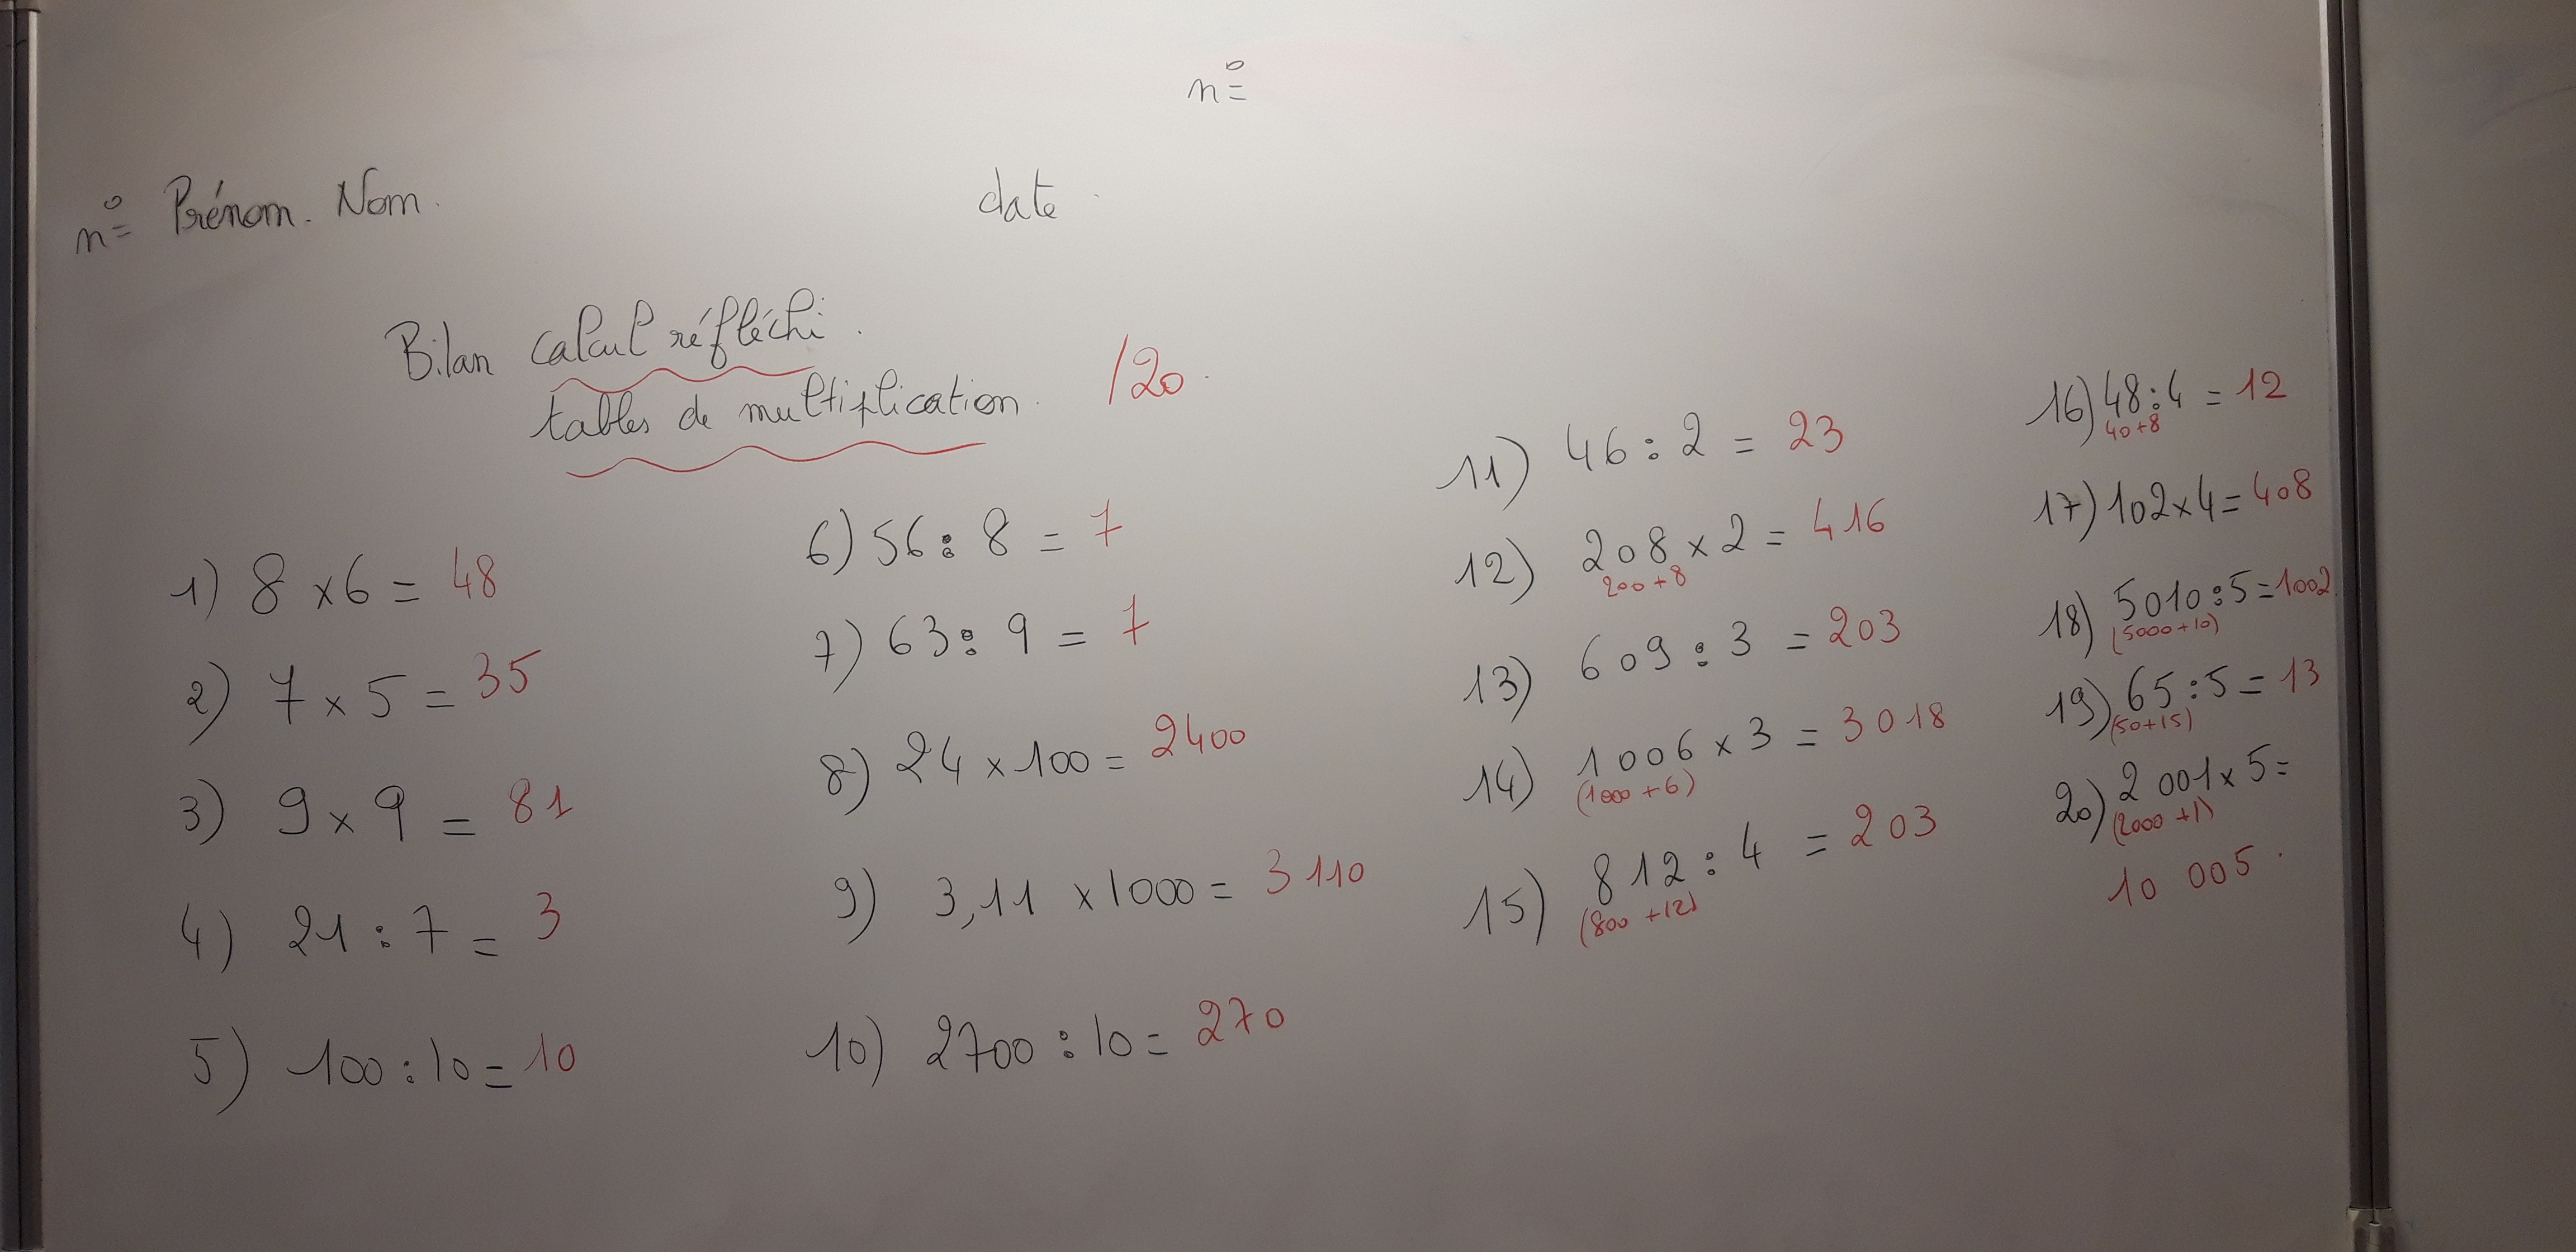 n°
n° Prénom. Nom.
date.
Bilan calcul réfléchi.
tables de multiplication. /20.
1) 8 x 6 = 48
2) 7 x 5 = 35
3) 9 x 9 = 81
4) 21 : 7 = 3
5) 100 : 10 = 10
6) 56 : 8 = 7
7) 63 : 9 = 7
8) 24 x 100 = 2400
9) 3,11 x 1000 = 3 110
10) 2700 : 10 = 270
11) 46 : 2 = 23
12) 208 x 2 = 416
200 + 8
13) 609 : 3 = 203
14) 1006 x 3 = 3 018
(1000 + 6)
15) 812 : 4 = 203
(800 + 12)
16) 48 : 4 = 12
40 + 8
17) 102 x 4 = 408
18) 5010 : 5 = 1002
(5000 + 10)
19) 65 : 5 = 13
(50 + 15)
20) 2 001 x 5 =
(2000 + 1)
10 005.